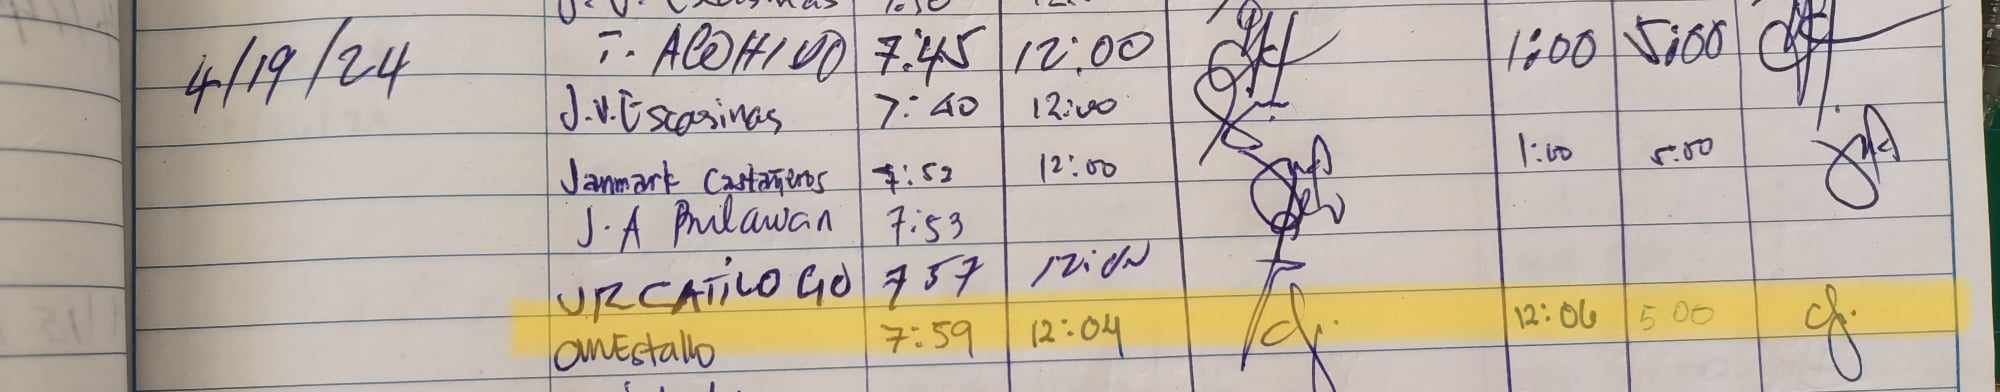 4/19/24 T. ACOHIDO 7:45 12:00 1:00 5:00
J.V. Escasinas 7:40 12:00
Janmark Castañeros 7:52 12:00 1:00 5:00
J.A Bulawan 7:53
VR CATILOGO 7 57 12:00
7:59 12:04 12:06 5 00